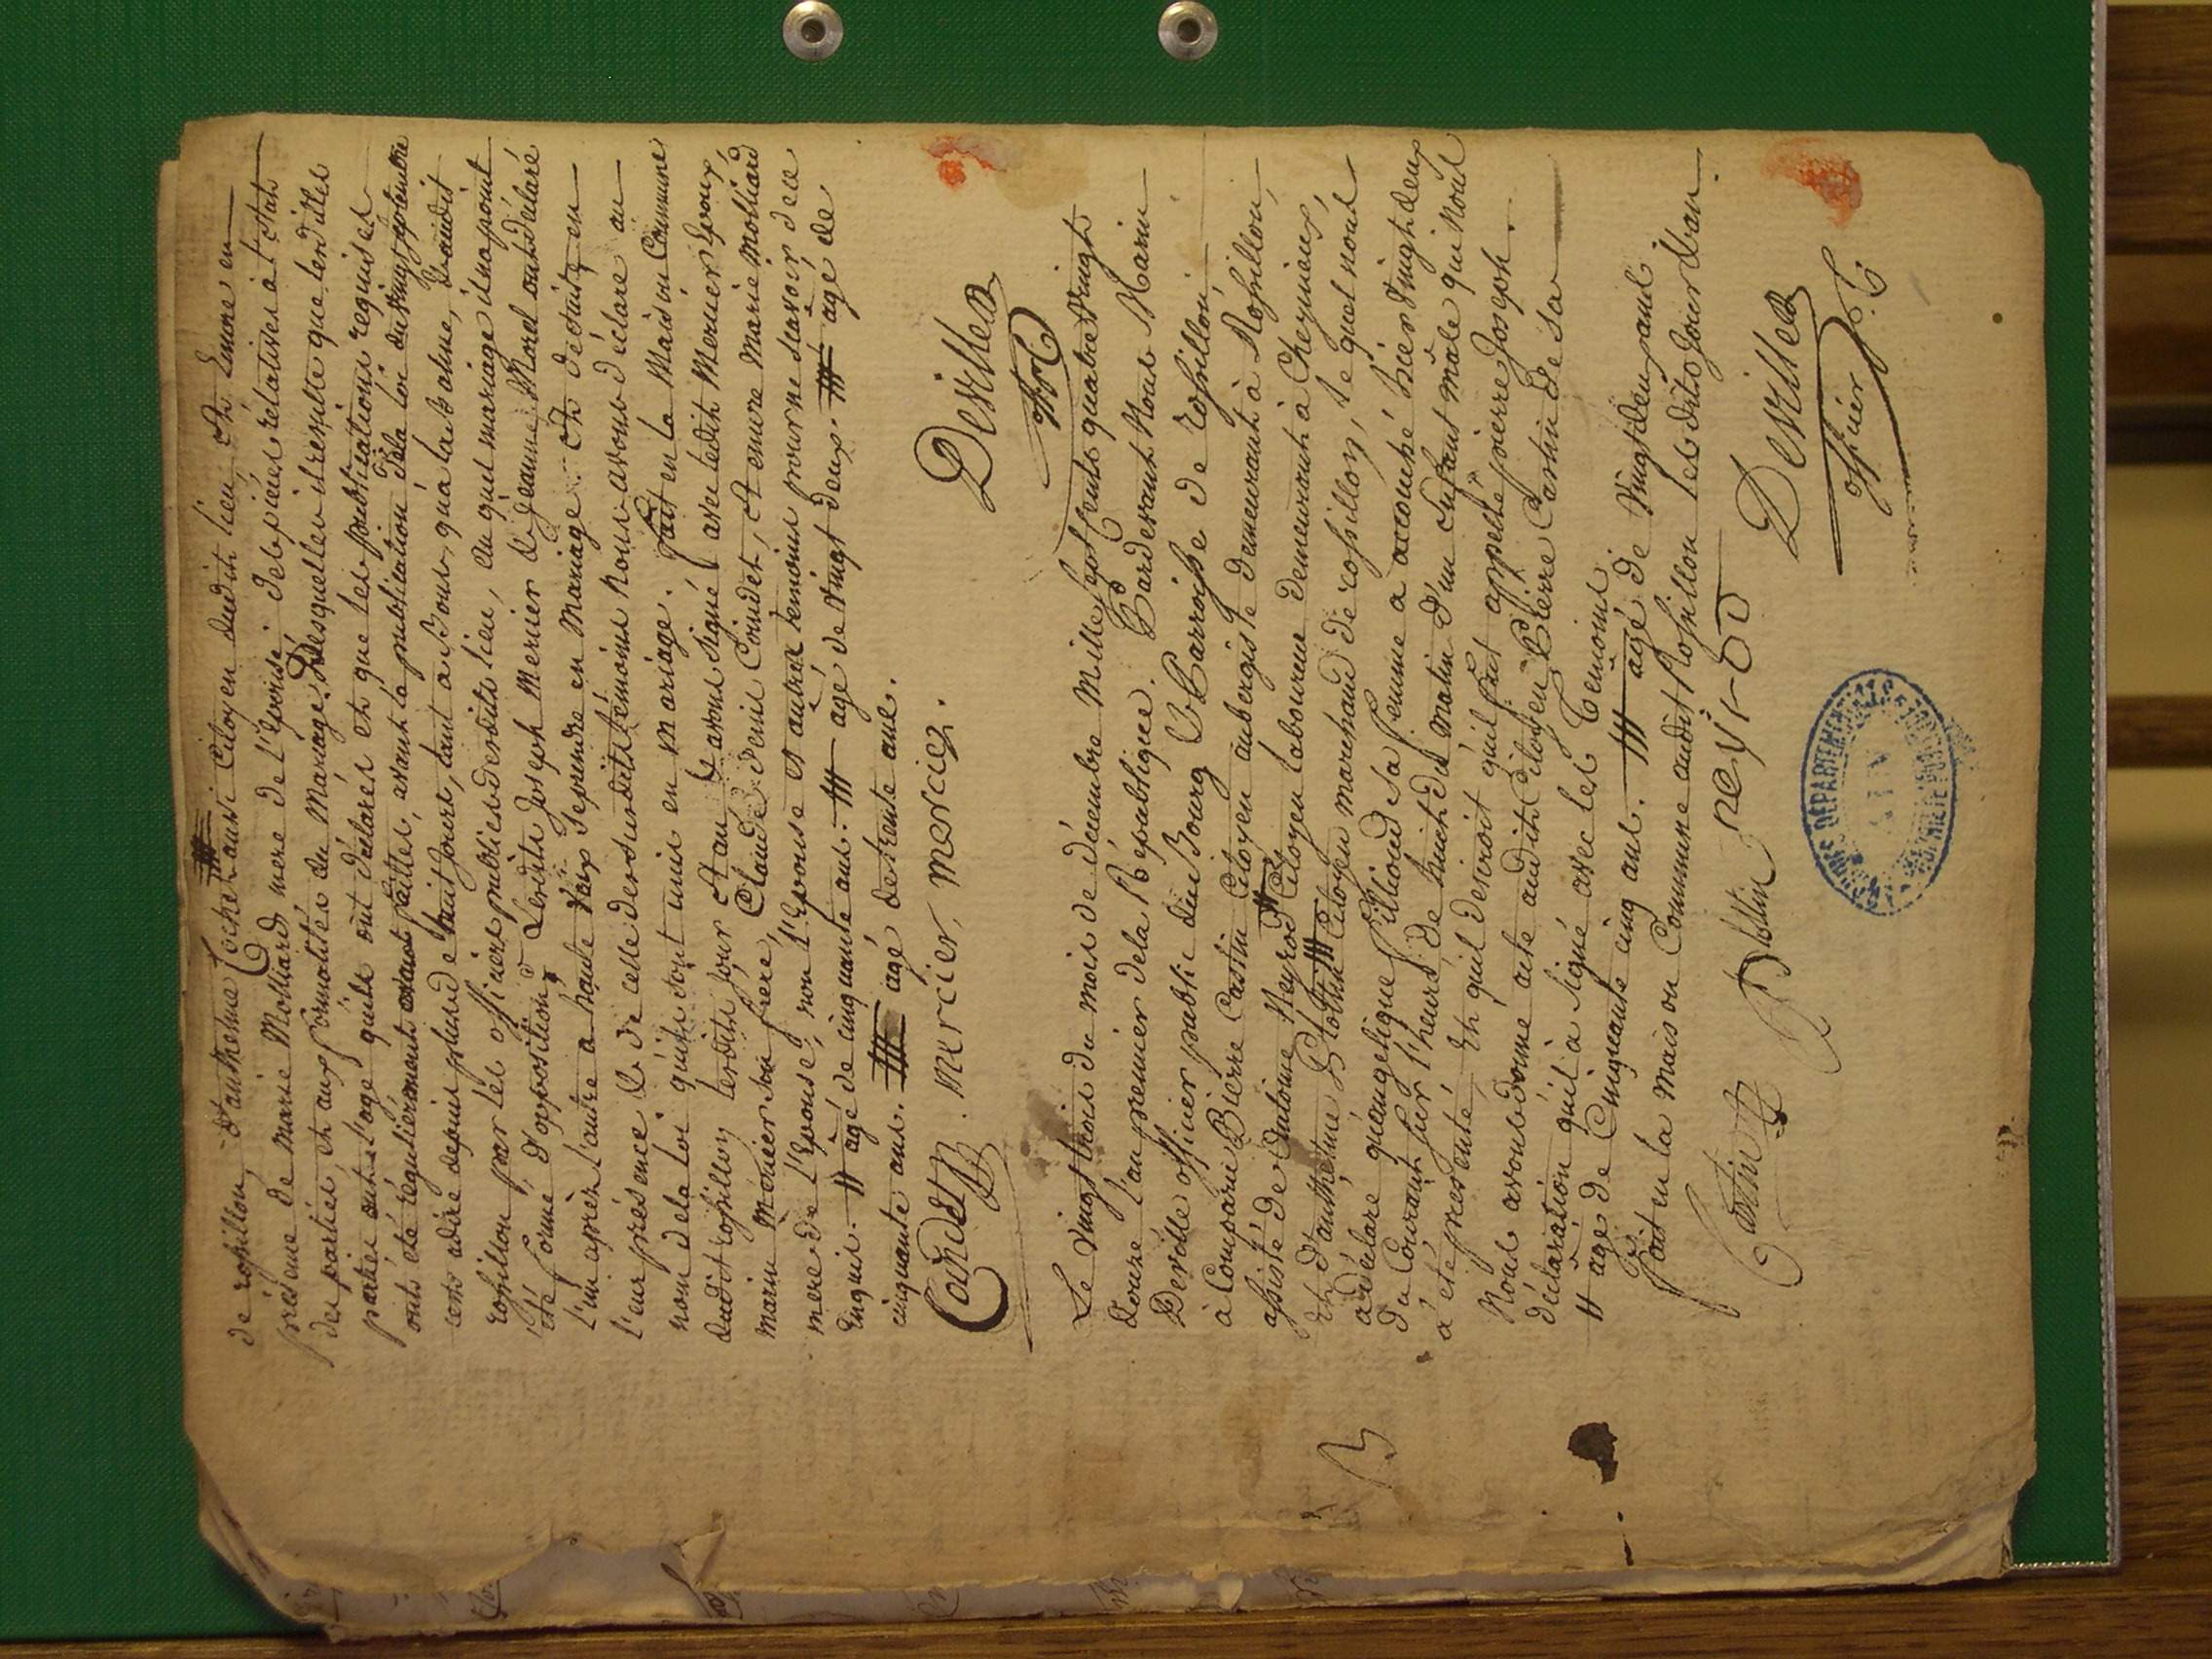 de rossillon, d'anthelme Cochet aussi Citoyen dudit lieu, et Encore en
présence de Marie Molliard mere de l'Epouse; des pieces rélatives à l'état
des parties, et aux formalités du Mariage. Desquelles il resulte que lesdittes
parties ont l'age quils ont déclarés et que les publications requises
onts été régulierement faittes, avant la publication de la loi du vingt septembre
cents adire depuis plus de huit jours, tant a qu'a la Balme, et audit
rossillon par les officiers publics desdits lieu, au quel mariage il na point
été formé d'opposition, Lesdits Joseph Mercier & Jeanne Morel ont déclaré
l'un après l'autre a haute Voix Se prendre en Mariage. et de suite, en
leur présence & de celle des susdits témoins nous avons déclare au
nom de la Loi quils sont unis en mariage. fait en la Maison Commune
dudit rossillon lesdits jour et an & avons signé avec ledit Mercier Epoux,
marin Mercier son frere, Claude Denis Coindet, et encore Marie Molliard
mere de l'Epouse, non l'Epouse et autres temoins pour ne scavoir de ce
Enquis. # agé de cinquante ans. ## agé de vingt deux. ### agé de
cinquante ans. #### agé de trente ans.
Coindet Mercier, Mercier. Devilles
offr
Le Vingt trois du mois de décembre Mille sept cents quatre vingt
Douze l'an premier de la République. Pardevant Nous Marin
Deville officier public du Bourg & Parroisse de Rossillon,
à Comparu Pierre Castin Citoyen aubergiste demeurant à Rossillon,
assisté de Antoine Neyrod Citoyen laboureur demeurant à Cheynieux,
Et d'anthelme Blottin Citoyen marchand de rossillon, le quel nous
a déclare qu'angelique Sa femme a accouché hier vingt deux
du Courant sur l'heure de huit du matin d'un Enfant mâle qui Nous
a été presenté, Et qu'il desiroit qu'il fut appellé pierre Joseph.
Nous avons donné acte audit Citoyen Pierre Castin de sa
déclaration qu'il à signé avec les Temoins
# agé de Cinquante cinq ans. ## agé de Vingt deux ans
fait en la maison Commune audit Rossillon lesdits jour & an.
Castin Blottin neyrod Devilles
officier